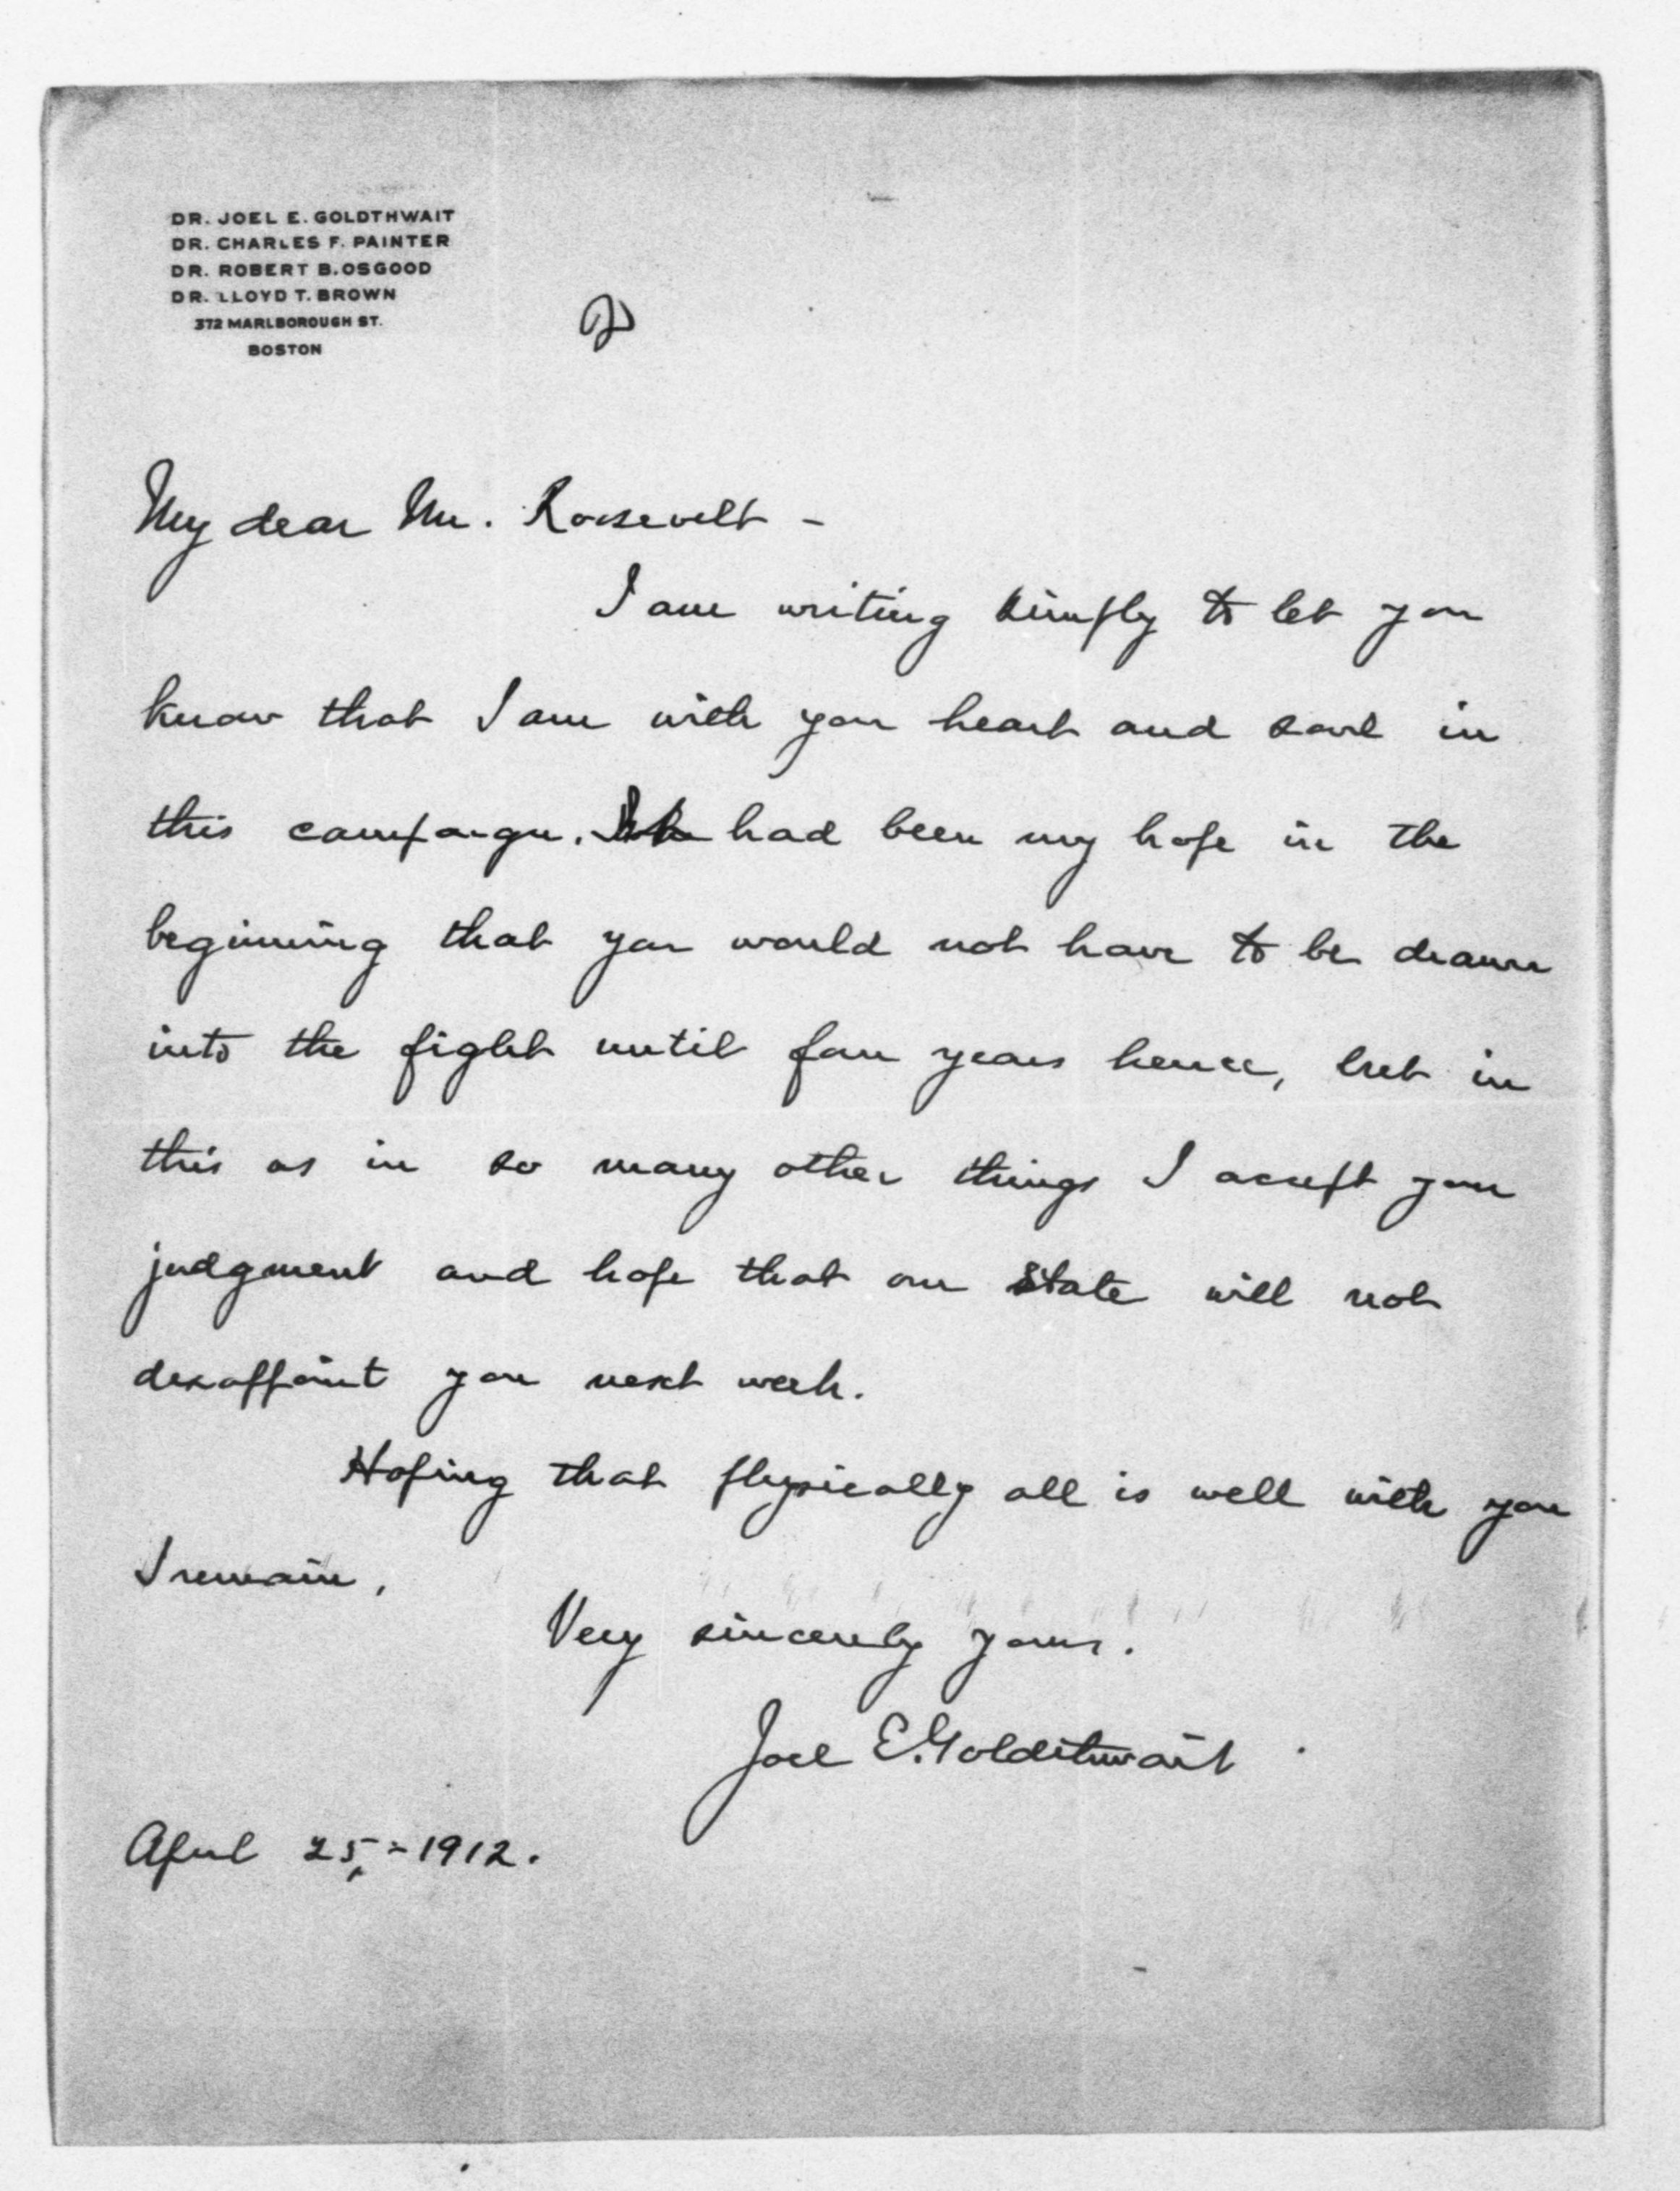 DR. JOEL E. GOLDTHWAIT
DR. CHARLES F. PAINTER
DR. ROBERT B. OSGOOD
DR. LLOYD T. BROWN
372 MARLBOROUGH ST.
BOSTON
My dear Mr. Roosevelt -
I am writing simply to let you
know that I am with you heart and soul in
this campaign. It had been my hope in the
beginning that you would not have to be drawn
into the fight until four years hence, but in
this as in so many other things I accept your
judgment and hope that our State will not
disappoint you next week.
Hoping that physically all is well with you
I remain,
Very sincerely yours.
Joel E. Goldthwait
April 25, - 1912.